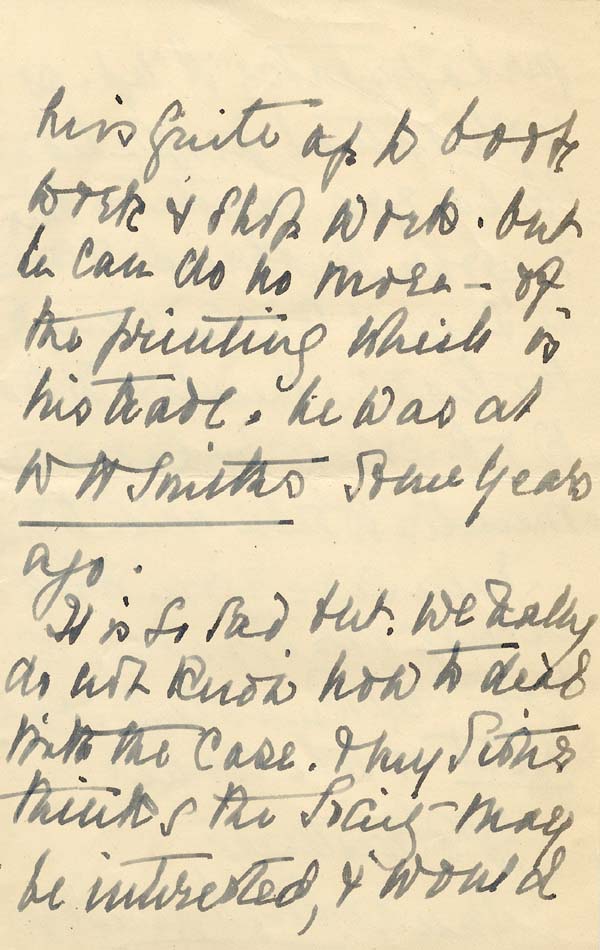 he is quite up to book
work & shop work. but
he can do no more - of
the printing which is
his trade. he was at
W H Smiths some years
ago.
It is so sad but. we really
do not know how to deal
with the case. & my Sister
thinks the Society may
be interested, & would